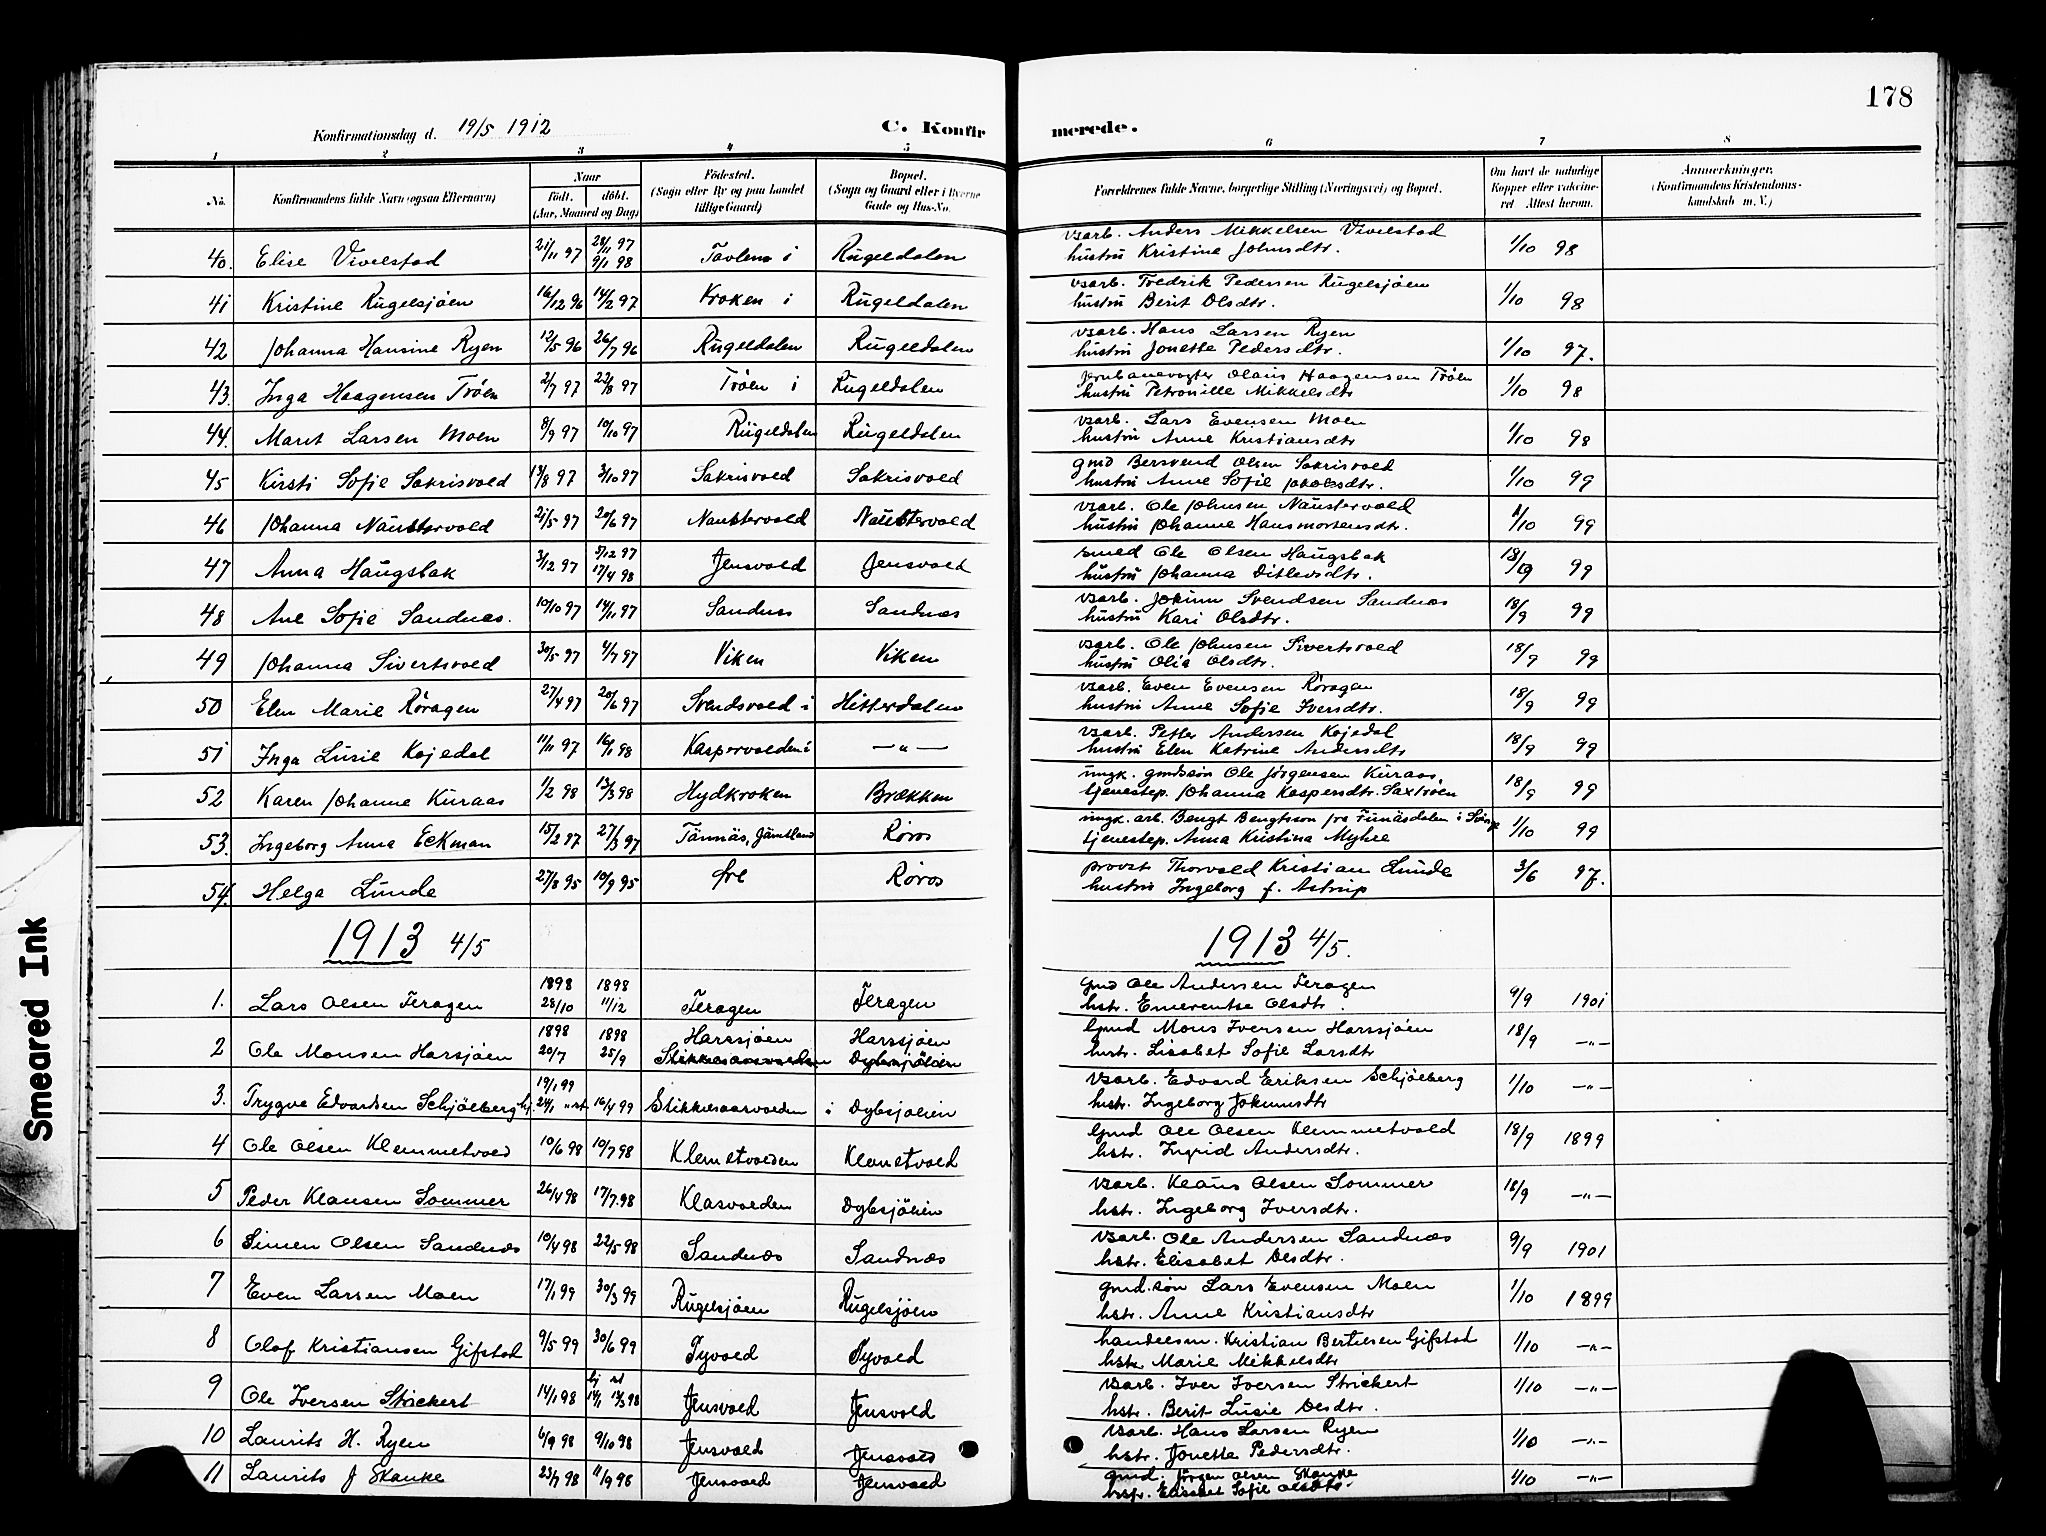 178
Konfirmationsdag d. 19/5 1912
C. Konfir
merede.
1 2 3 4 5 6 7 8
No. Konfirmandens fulde Navn (ogsaa Efternavn) Naar født. døbt. (Aar, Maaned og Dag) Fødested. (Sogn eller By og paa Landet tillige Gaard) Bopæl. (Sogn og Gaard eller i Byerne Gade og Hus-No. Forældrenes fulde Navne, borgerlige Stilling (Næringsvei) og Bopæl. Om havt de naturlige Kopper eller vakcineret Attest herom. Anmerkninger. (Konfirmandens Kristendomskundskab m. V.)
40. Elise Vivelstad 21/11 97 28/11 97 9/1 98 Tavlens i Rugeldalen vsarb. Anders Mikkelsen Vivelstad hustru Kristine Johnsdtr. 1/10 98
41 Kristine Rugelsjöen 16/12 96 14/2 97 Kroken i Rugeldalen vsarb. Fredrik Pedersen Rugelsjöen hustru Berit Olsdtr. 1/10 98
42 Johanna Hansine Ryen 12/5 96 26/7 96 Rugeldalen Rugeldalen vsarb. Hans Larsen Ryen hustru Jonette Pedersdtr. 1/10 97.
43. Inga Haagensen Tröen 2/7 97 22/8 97 Tröen i Rugeldalen Jernbanevogter Olaus Haagensen Tröen hustru Petronille Mikkelsdtr 1/10 98
44. Marit Larsen Moen 8/9 97 10/10 97 Rugeldalen Rugeldalen vsarb. Lars Evensen Moen hustru Anne Kristiansdtr 1/10 98
45 Kirsti Sofie Sakrisvold 13/8 97 3/10 97 Sakrisvold Sakrisvold gmd Bersvend Olsen Sakrisvold hustru Anne Sofie Jakobsdtr. 1/10 99
46 Johanna Naustervold 21/5 97 20/6 97 Naustervold Naustervold vsarb. Ole Johnsen Naustervold hustru Johanne Hansmortensdtr. 1/10 99
47 Anna Haugsbak 3/12 97 5/12 97 17/4 98 Jensvold Jensvold smed Ole Olsen Haugsbak hustru Johanna Ditlevsdtr. 18/9 99
48 Ane Sofie Sandnæs. 10/10 97 14/11 97 Sandnes Sandnæs vsarb. Jokum Svendsen Sandnæs hustru Kari Olsdtr. 18/9 99
49 Johanna Sivertsvold 30/5 97 4/7 97 Viken Viken vsarb. Ole Johnsen Sivertsvold hustru Olia Olsdtr. 18/9 99
50 Elen Marie Röragen 27/4 97 20/6 97 Svendsvold i Hitterdalen vsarb. Even Evensen Röragen hustru Anne Sofie Iversdtr. 18/9 99
51 Inga Lusie Kojedal 11/11 97 16/1 98 Kaspervolden i —"— vsarb. Petter Andersen Kojedal hustru Elen Katrine Andersdtr 18/9 99
52 Karen Johanne Kuraas 1/2 98 13/3 98 Hydkroken Brækken ungk. gmdssön Ole Jörgensen Kuraas, tjenestep. Johanna Kaspersdtr. Saxtröen 18/9 99
53. Ingeborg Anna Eckman 15/2 97 27/3 97 Tännäs, Jämtland Röros ungk. arb. Bengt Bengtsson fra Funäsdalen i tjenestep. Anna Kristina Myhre 1/10 99
54. Helga Lunde 27/8 95 10/9 95 Öre Röros provst Thorvald Kristian Lunde hustru Ingeborg f. Astrup 3/6 97.
1913 4/5 1913 4/5.
1. Lars Olsen Feragen 1898 28/10 1898 11/12 Feragen Feragen Gmd Ole Andersen Feragen hstr. Emerentse Olsdtr. 9/9 1901
2 Ole Monsen Harsjöen 1898 20/7 1898 25/9 Harssjöen Stikkesaarvolden Harssjöen Dybsjölien Gmd Mons Iversen Harssjöen hustr. Lisabet Sofie Larsdtr 18/9 —"—
3. Trygve Edvardsen Schjölberg 19/1 99 16/4 99 Stikkesaarvolden i Dybsjölien Vsarb. Edvard Eriksen Schjölberg hstr. Ingeborg Jokumsdtr 1/10 —"—
4 Ole Olsen Klemmetvold 10/6 98 10/7 98 Klemetvolden Klemetvold Gmd Ole Olsen Klemmetvold hstr. Ingrid Andersdtr. 18/9 1899
5 Peder Klausen Sommer 26/4 98 17/7.98 Klasvolden Dybsjölien Vsarb. Klaus Olsen Sommer hstr. Ingeborg Iversdtr. 18/9 —"—
6 Simen Olsen Sandnæs 10/4 98 22/5 98 Sandnæs Sandnæs Vsarb. Ole Andersen Sandnæs hstr. Elisabet Olsdtr. 9/9 1901
7 Even Larsen Moen 17/1 99 30/3 99 Rugelsjöen Rugelsjöen gmd.sön Lars Evensen Moen hstr. Anne Kristiansdtr 1/10 1899
8 Olaf Kristiansen Gifstad 9/5 99 30/6 99 Tyvold Tyvold handelsm. Kristian Bertelsen Gifstad hstr. Marie Mikkelsdtr 1/10 —"—
9 Ole Iversen Strickert 14/1 98 hj st 14/1 13/3 98 Jensvold Jensvold Vsarb. Iver Iversen Strickert hstr. Berit Lusie Olsdtr. 1/10 —"—
10 Laurits H. Ryen 6/9 98 9/10 98 Jensvold Jensvold Vsarb. Hans Larsen Ryen hstr. Jonette Pedersdtr. 1/10 —"—
11 Laurits J Skanke 23/7 98 11/9 98 Jensvold Jensvold gmd. Jörgen Olsen Skanke hstr. Elisabet Sofie Olsdtr. 1/10 —"—
Smeared Ink